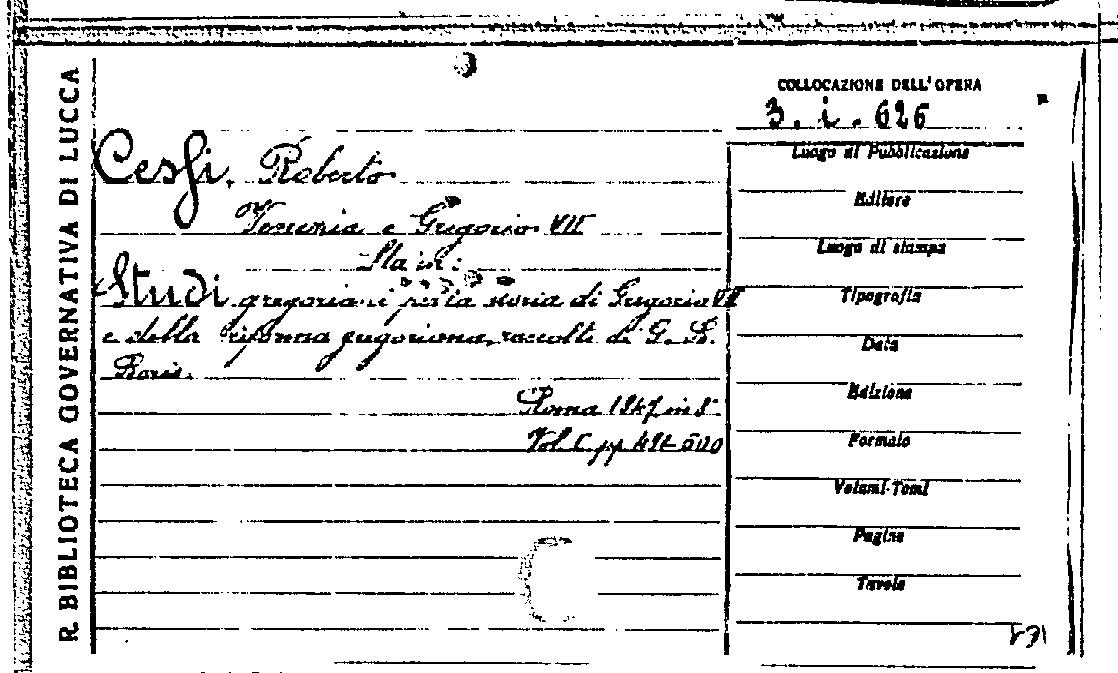 R. BIBLIOTECA GOVERNATIVA DI LUCCA
COLLOCAZIONE DELL'OPERA
3. i. 626
Cessi, Roberto
Venezia e Gregorio VII
Sta in:
Studi gregoriani per la storia di Gregorio VII
e della riforma gregoriana, raccolti da G. B.
Borin.
Roma 1947 in 8°
Vol. I pp 491-500
Luogo di Pubblicazione
Editore
Luogo di stampa
Tipografia
Data
Edizione
Formato
Volumi-Tomi
Pagine
Tavole